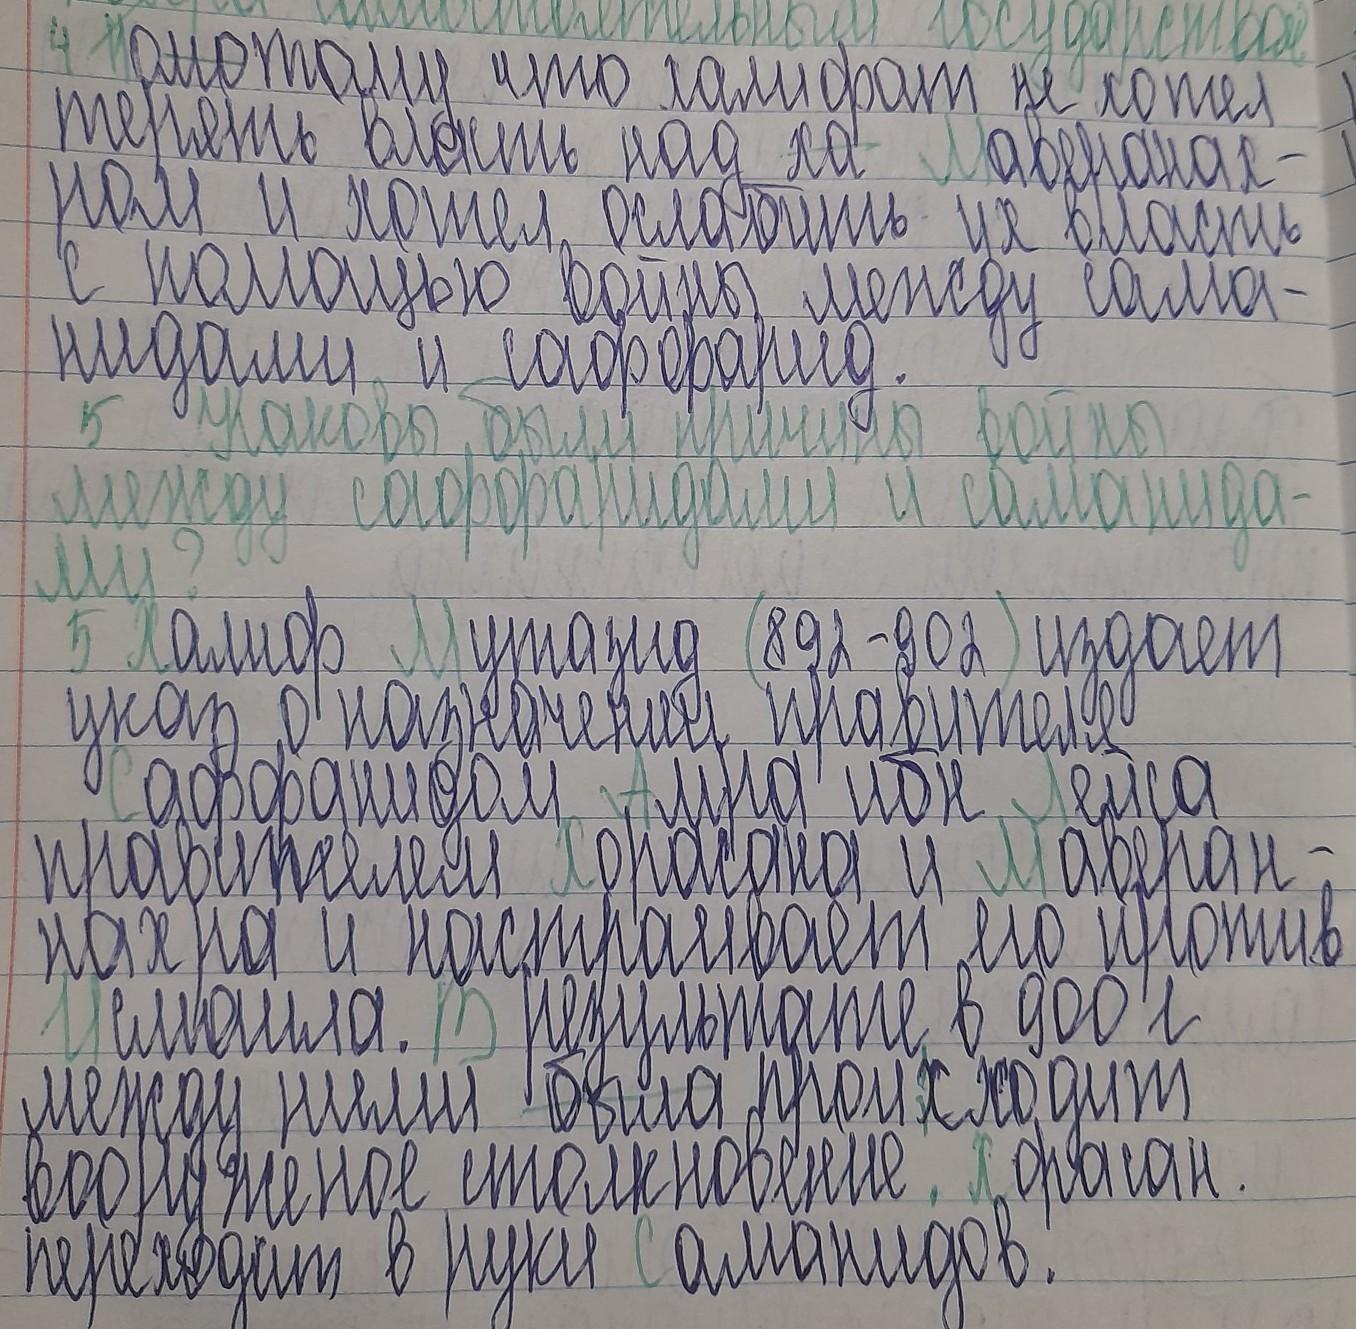 самостоятельным государством
4 Помотому что халифат не хотел
терять власть над ха Мавераннах-
ром и хотел ослабить их власть
с помощью войны между сама-
нидами и саффарид.
5 Каковы были причины войны
между саффаридами и саманида-
ми?
5 Халиф Мутазид (892-902) издает
указ о назначении правителя
Саффаридом Амра ибн Лейса
правителем Хорасана и Маверан-
нахра и настраивает его против
Исмаила. В результате в 900 г
между ними была происходит
вооруженое столкновение. Хорасан.
переходит в руки Саманидов.